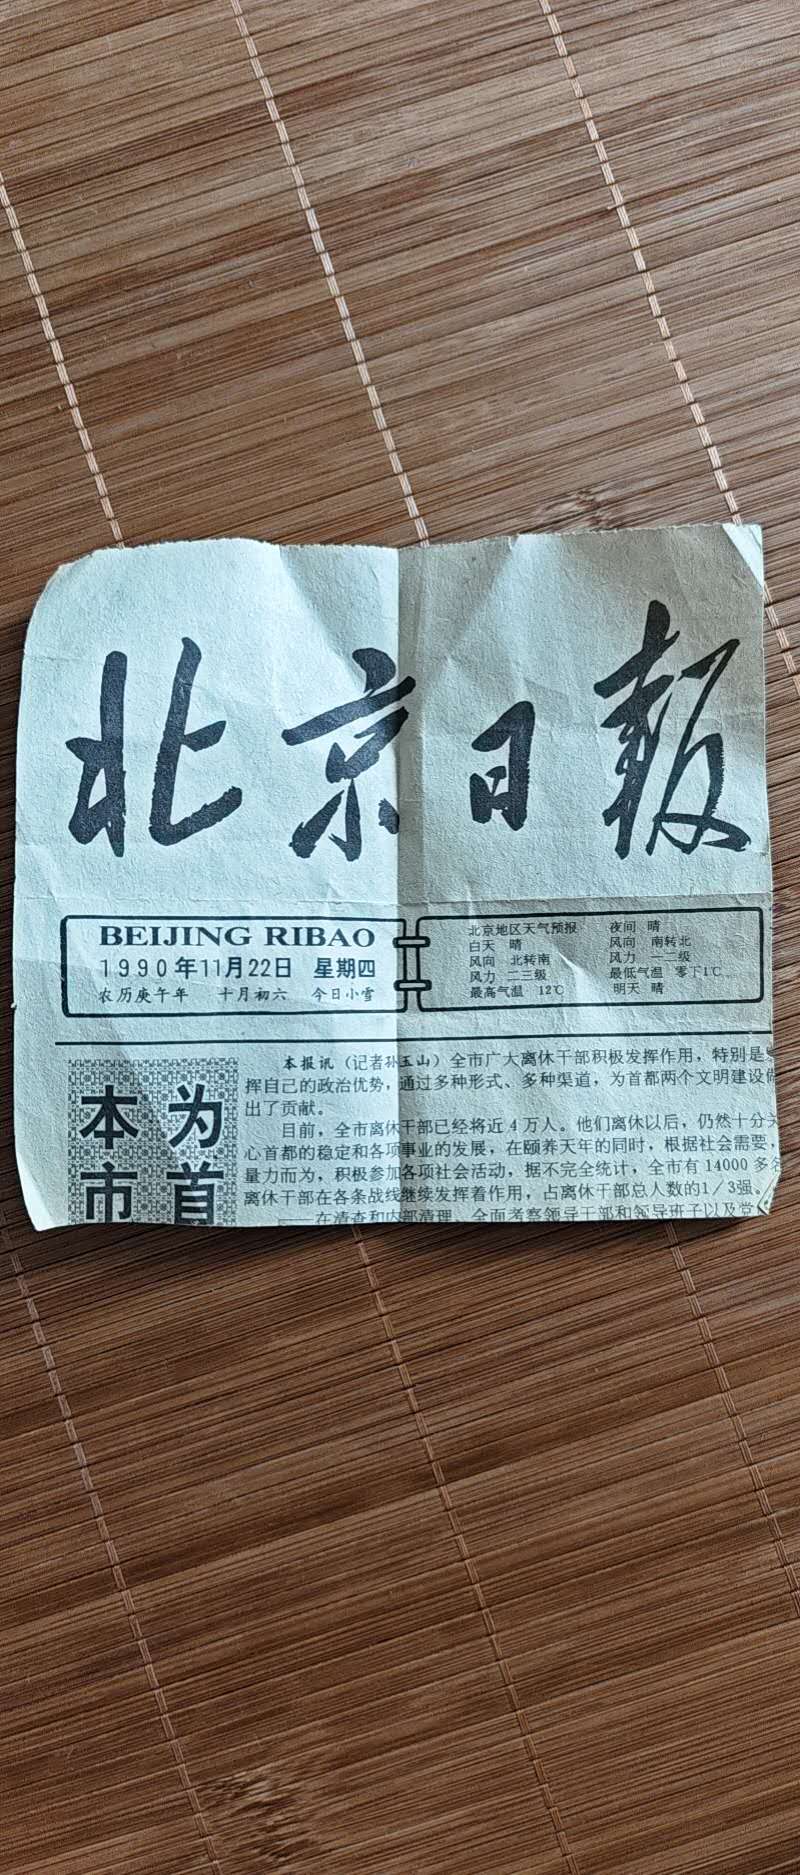 北京日报
BEIJING RIBAO
1990年11月22日 星期四
农历庚午年 十月初六 今日小雪
北京地区天气预报
白天 晴
风向 北转南
风力 二三级
最高气温 12℃
夜间 晴
风向 南转北
风力 一二级
最低气温 零下1℃
明天 晴
为首
本市
本报讯(记者孙玉山)全市广大离休干部积极发挥作用,特别是
挥自己的政治优势,通过多种形式、多种渠道,为首都两个文明建设
出了贡献。
目前,全市离休干部已经将近4万人。他们离休以后,仍然十分关
心首都的稳定和各项事业的发展,在颐养天年的同时,根据社会需要,
量力而为,积极参加各项社会活动,据不完全统计,全市有14000多名
离休干部在各条战线继续发挥着作用,占离休干部总人数的1/3强。
——在清查和内部清理、全面考察领导干部和领导班子以及党